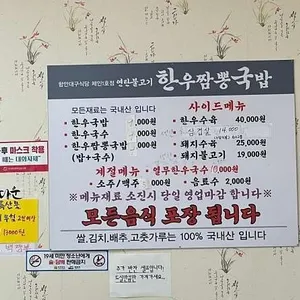 함안대구식당 체인1호점 연탄불고기 한우짬뽕국밥
모든재료는 국내산 입니다
한우국밥 ,000원
한우국수 ,000원
한우짬뽕국밥 ,000원
(밥+국수)
사이드메뉴
한우수육 40,000원
14,000
돼지수육 25,000원
돼지불고기 19,000원
계절메뉴 열무한우국수 ,000원
소주/맥주 000원 음료수 2,000원
※메뉴재료 소진시 당일 영업마감 합니다※
모든음식 포장 됩니다
쌀,김치,배추,고춧가루는 100% 국내산 입니다
후 마스크 착용
때는 대화자제"
19세 미만 청소년에게
술·담배 판매금지
추가 반찬
가져가세요